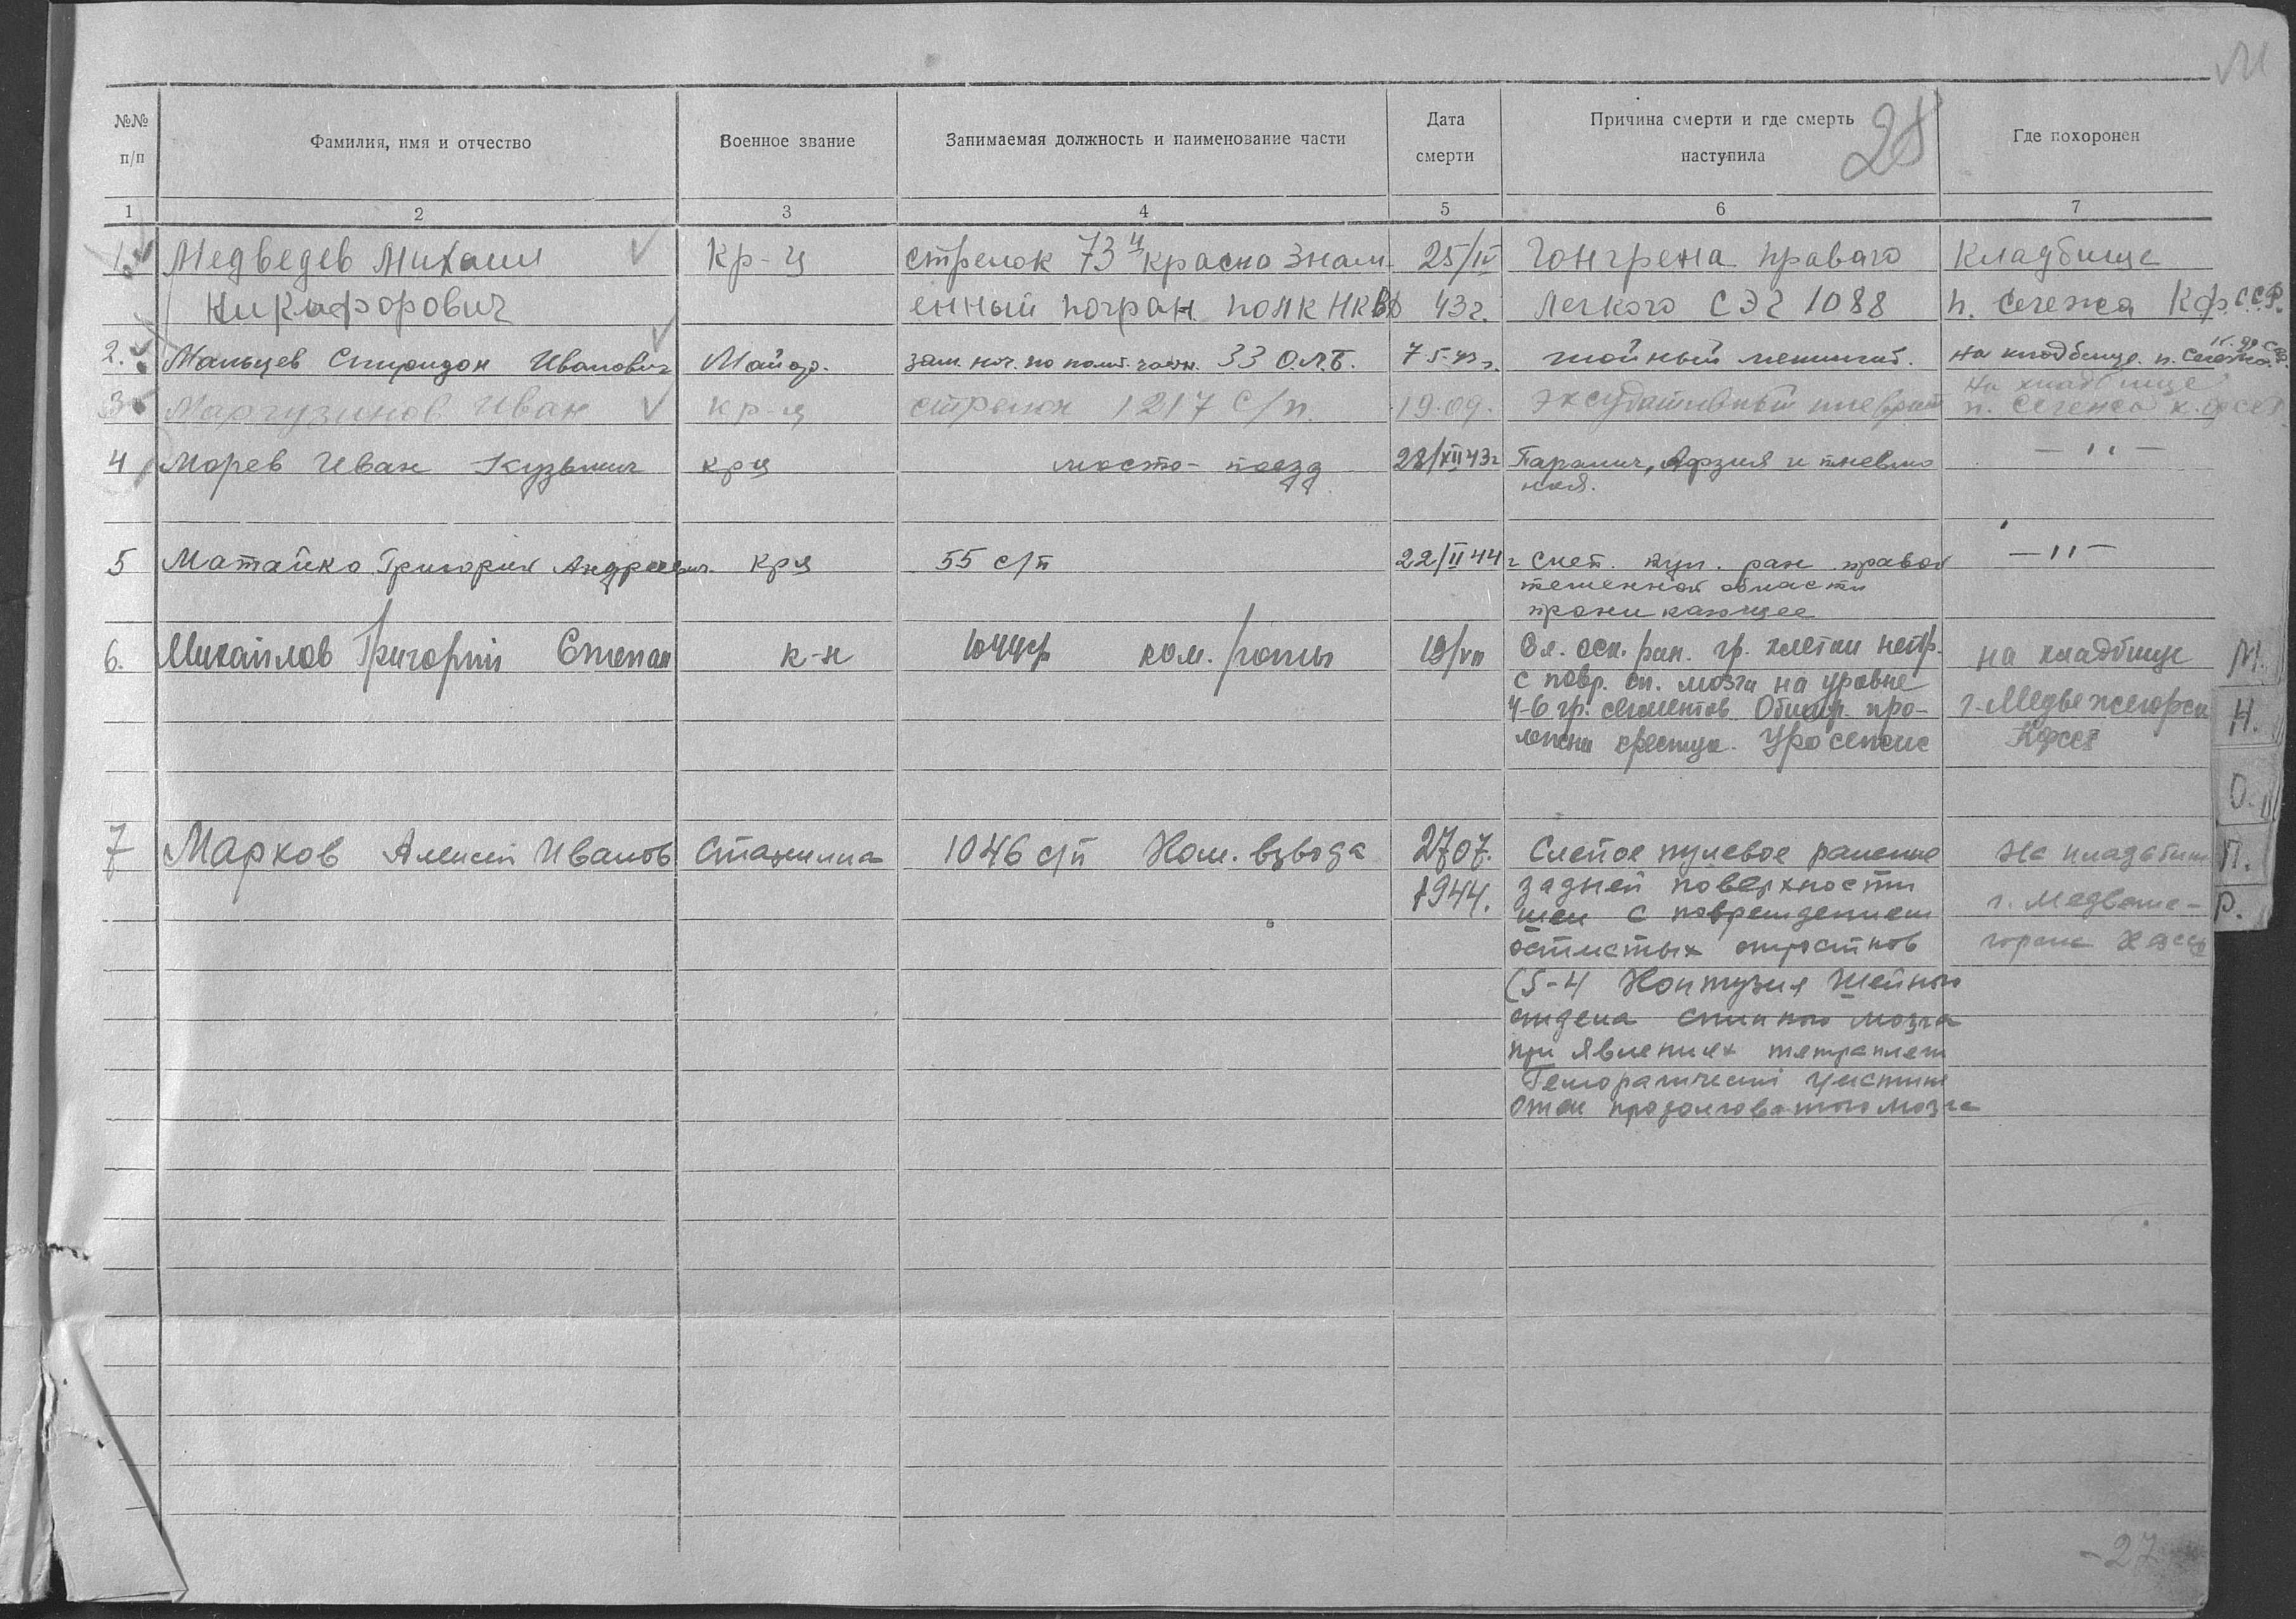 М
28
№№ п/п
Фамилия, имя и отчество
Военное звание
Занимаемая должность и наименование части
Дата смерти
Причина смерти и где смерть наступила
Где похоронен
1 2 3 4 5 6 7
1. Медведев Михаил кр-ц стрелок 73й красно знам- 25/IV Гонгрена праваго Кладбище
Никифорович енный погран полк НКВД 43г. легкого СЭГ 1088 п. Сегежа КфССР.
2. Мальцев Спиридон Иванович Майор. зам. нач. по полит. части. 33 О.Л.Б. 7-5-43г. гнойный менингит. на кладбище п. Сегежа
3 Маргузинов Иван кр-ц стрелок 1217 с/п. 19.09. эксудативный плеврит на кладбище
п. Сегежа к.фсср
4 Морев Иван Кузьмич крц мосто-поезд 28/XII 43г Паралич, Афзия и пневмо
ния. —"—
5 Матайко Григорий Андреевич крц 55 с/п 22/II 44г Слеп. пул. ран правой —"—
теменной области
проникающее
6. Михайлов Григорий Степан к-н 1044сп ком. роты 19/VII Сл. оск. ран. гр. клетки непр. на кладбище
с повр. сп. мозга на уровне
4-6 гр. сегментов Обшир. про- г. Медвежегорск
лежни крестца. Уросепсис Кфсср
7 Марков Алексей Иванов Старшина 1046 с/п Ком. взвода 27 07. Слепое пулевое ранение На кладбищ
1944. задней поверхности
шеи с повреждением г. Медвеже-
остистых отростков горске Кфсср
(5-4 Контузия шейного
отдела спинного мозга
при явлениях тетраплег
Геморагический цистит
Отек продолговатого мозга
М.
Н.
О.
П.
Р.
-27